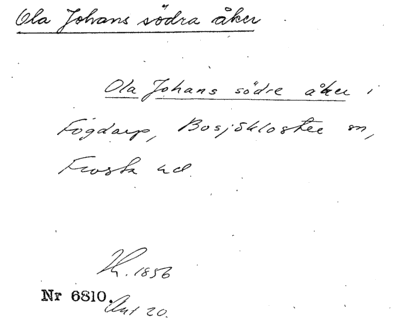 Ola Johans södra åker
Ola Johans södre åker i
Fogdarp, Bosjökloster sn,
Frosta hd.
H. 1856
Nr 6810.
Akt 20.